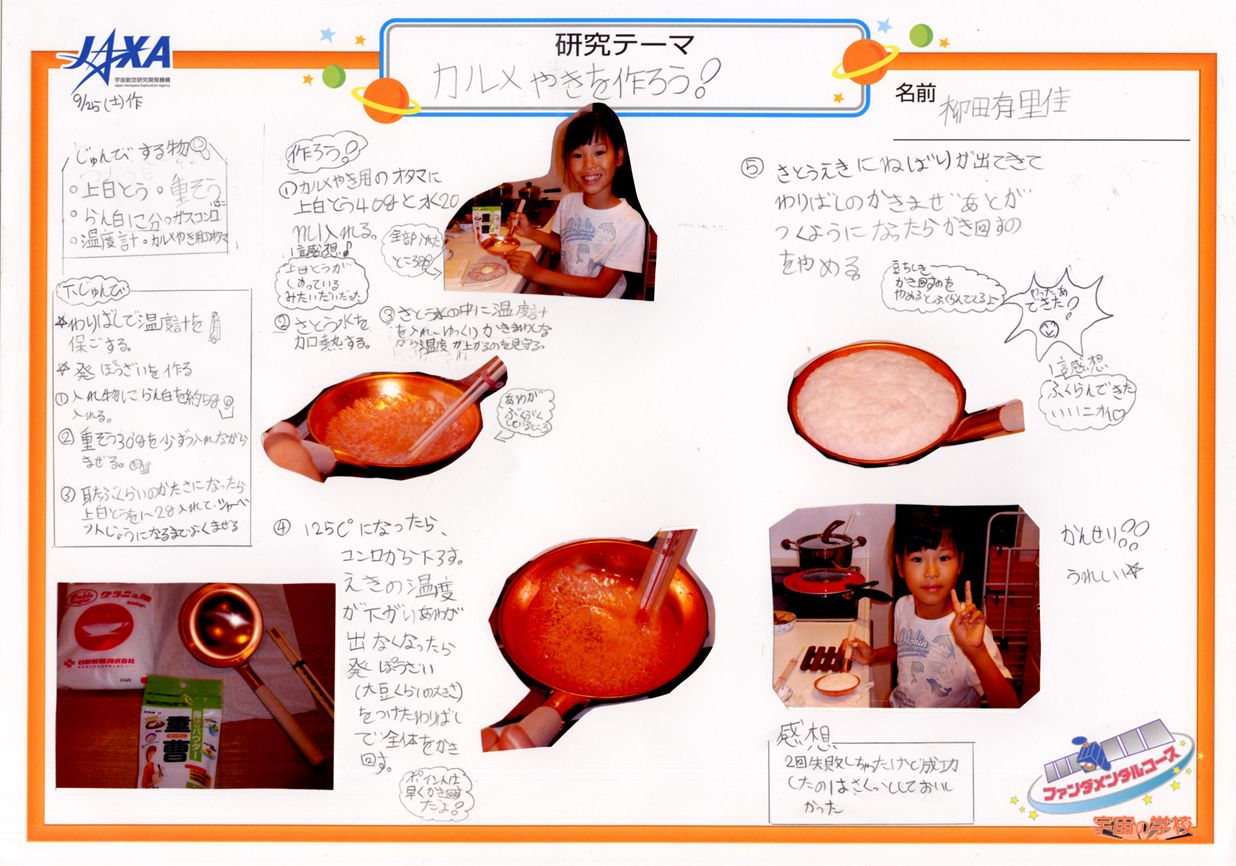 JAXA
宇宙航空研究開発機構
Japan Aerospace Exploration Agency
9/25(土)作
研究テーマ
カルメやきを作ろう!
名前
柳田有里佳
じゅんびする物
○上白とう○重そう
○らん白1こ分○ガスコンロ
○温度計○カルメやき用のオタマ
下じゅんび
☆わりばしで温度計を
保ごする。
☆発ぽうざいを作る
①入れ物にらん白を約15g
入れる。
②重そう30gを少しずつ入れながら
まぜる。
③耳たぶくらいのかたさになったら
上白とうを1〜2g入れて、シャーベ
ットじょうになるまでよくまぜる
作ろう!
①カルメやき用のオタマに
上白とう40gと水20
ml入れる。
1言感想♪
上白とうが
しめっている
みたいだいだった
全部入れた
ところ
重曹
②さとう水を
加熱する。
③さとう水の中に温度計
を入れ、ゆっくりかきまわしな
がら温度が上がるのを見守る。
あわが
ぶくぶく
しているところ
④125C°になったら、
コンロから下ろす。
えきの温度
が下がりあわが
出なくなったら
発ぽうざい
(大豆くらいの大きさ)
をつけたわりばし
で全体をかき
回す。
ポイントは
早くかき回す
だよ!
⑤さとうえきにねばりが出てきて
わりばしのかきまぜあとが
つくようになったらかき回すの
をやめる
豆ちしき
かき回すのを
やめるとふくらんでくるよ
やったあ
できた!
1言感想
ふくらんできた
いいニオイ♡
かんせい!!
うれしい☆
感想
2回失敗しちゃったけど成功
したのはさくっとしておいし
かった
グラニュ糖
日新製糖株式会社
重曹
ファンダメンタルコース
宇宙の学校